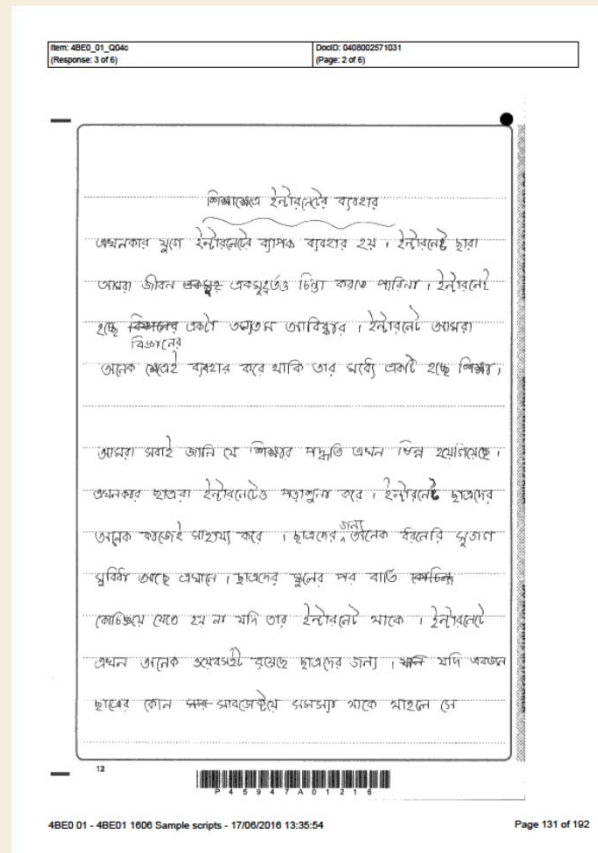 Item: 4BE0_01_Q04c
(Response: 3 of 6)
DocID: 0408002571031
(Page: 2 of 6)
শিক্ষাক্ষেত্রে ইন্টারনেটের ব্যবহার
এখনকার যুগে ইন্টারনেটের ব্যাপক ব্যবহার হয় । ইন্টারনেট ছারা
আমরা জীবন একমুহূর্তও চিন্তা করতে পারিনা । ইন্টারনেট
হচ্ছে বিজ্ঞানের একটা অন্যতম আবিষ্কার । ইন্টারনেট আমরা
অনেক ক্ষেত্রেই ব্যবহার করে থাকি তার মধ্যে একটি হচ্ছে শিক্ষা ।
আমরা সবাই জানি যে শিক্ষার পদ্ধতি এখন ভিন্ন হয়েগিয়েছে ।
এখনকার ছাত্ররা ইন্টারনেটেও পড়াশুনা করে । ইন্টারনেট ছাত্রদের
অনেক কাজেই সাহায্য করে । ছাত্রদের জন্য অনেক ধরনেরি সুজগ
সুবিধা আছে এখানে । ছাত্রদের স্কুলের পর বাতি
কোচিঙ্গয়ে যেতে হয় না যদি তার ইন্টারনেট থাকে । ইন্টারনেটে
এখন অনেক ওয়েবসাইট রয়েছে ছাত্রদের জন্য । যদি একজন
ছাত্রের কোন সাবজেক্টয়ে সমস্যা থাকে তাহলে সে
12
P45947A01216
4BE0 01 - 4BE01 1606 Sample scripts - 17/06/2016 13:35:54
Page 131 of 192